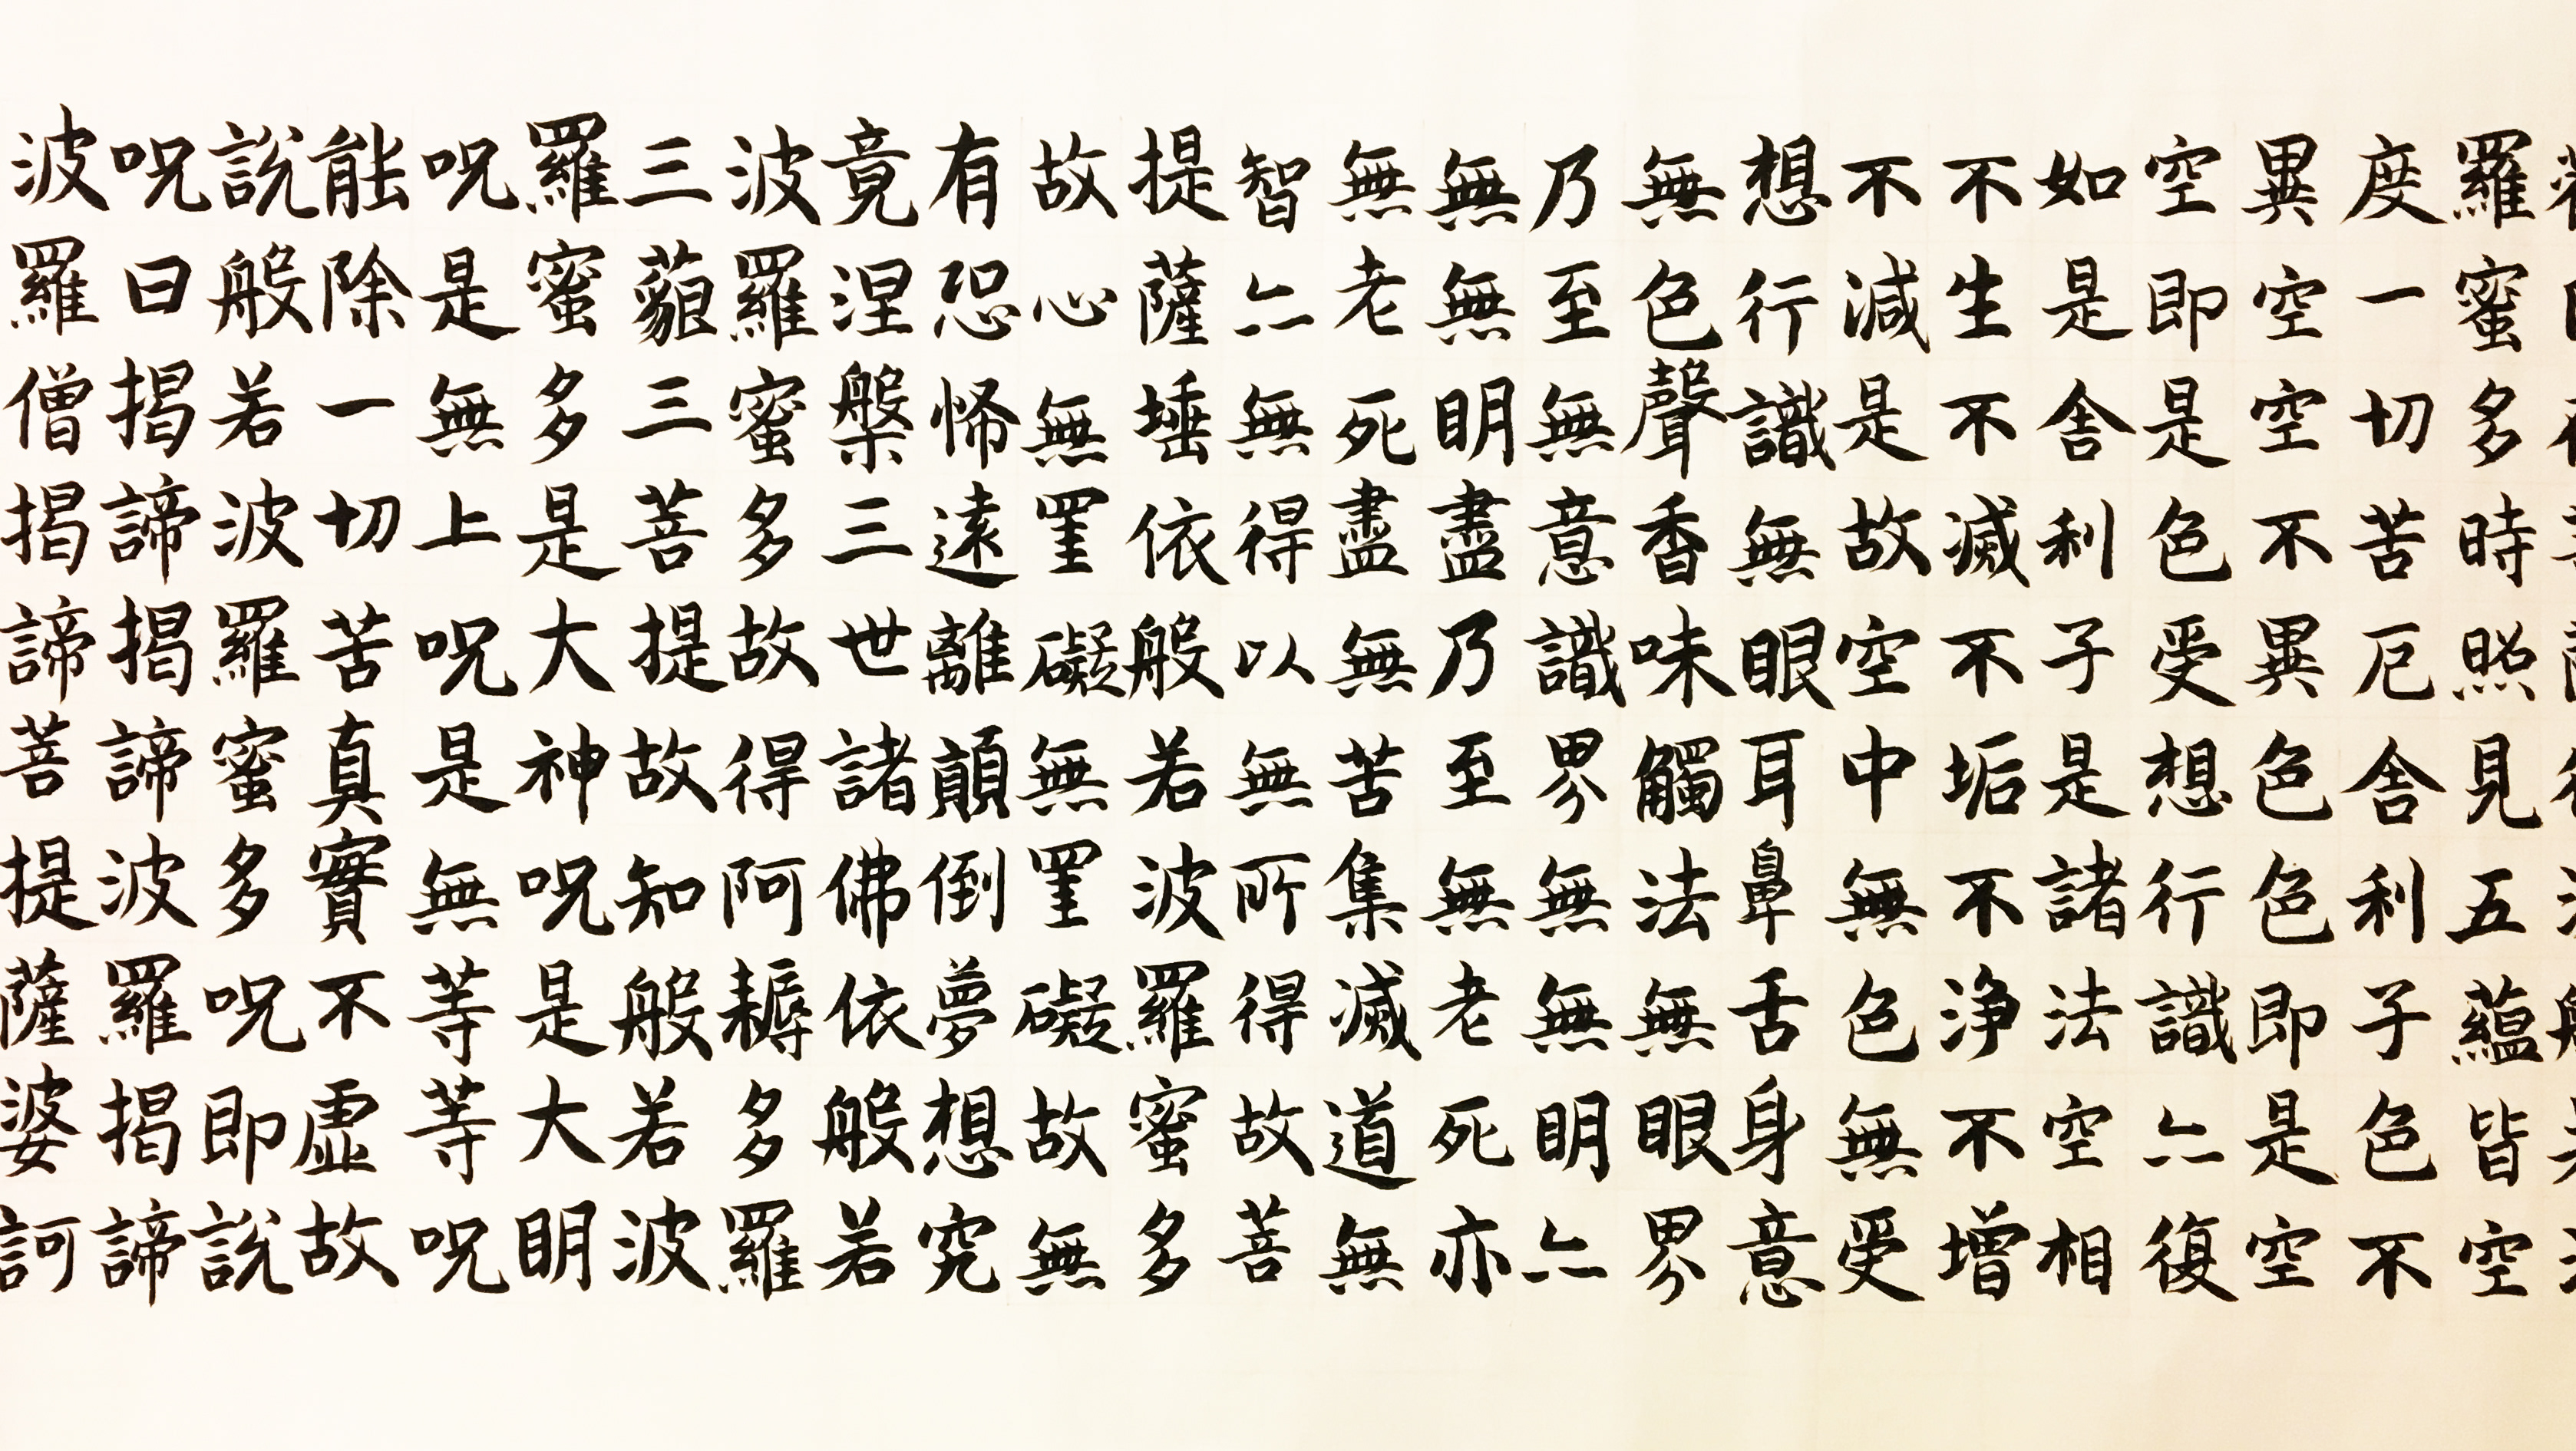 羅蜜多時照見五蘊皆空
度一切苦厄舍利子色不
異空空不異色色即是空
空即是色受想行識亦復
如是舍利子是諸法空相
不生不滅不垢不浄不增
不減是故空中無色無受
想行識無眼耳鼻舌身意
無色聲香味觸法無眼界
乃至無意識界無無明亦
無無明盡乃至無老死亦
無老死盡無苦集滅道無
智亦無得以無所得故菩
提薩埵依般若波羅蜜多
故心無罣礙無罣礙故無
有恐怖遠離顛倒夢想究
竟涅槃三世諸佛依般若
波羅蜜多故得阿耨多羅
三藐三菩提故知般若波
羅蜜多是大神呪是大明
呪是無上呪是無等等呪
能除一切苦真實不虚故
說般若波羅蜜多呪即說
呪曰揭諦揭諦波羅揭諦
波羅僧揭諦菩提薩婆訶